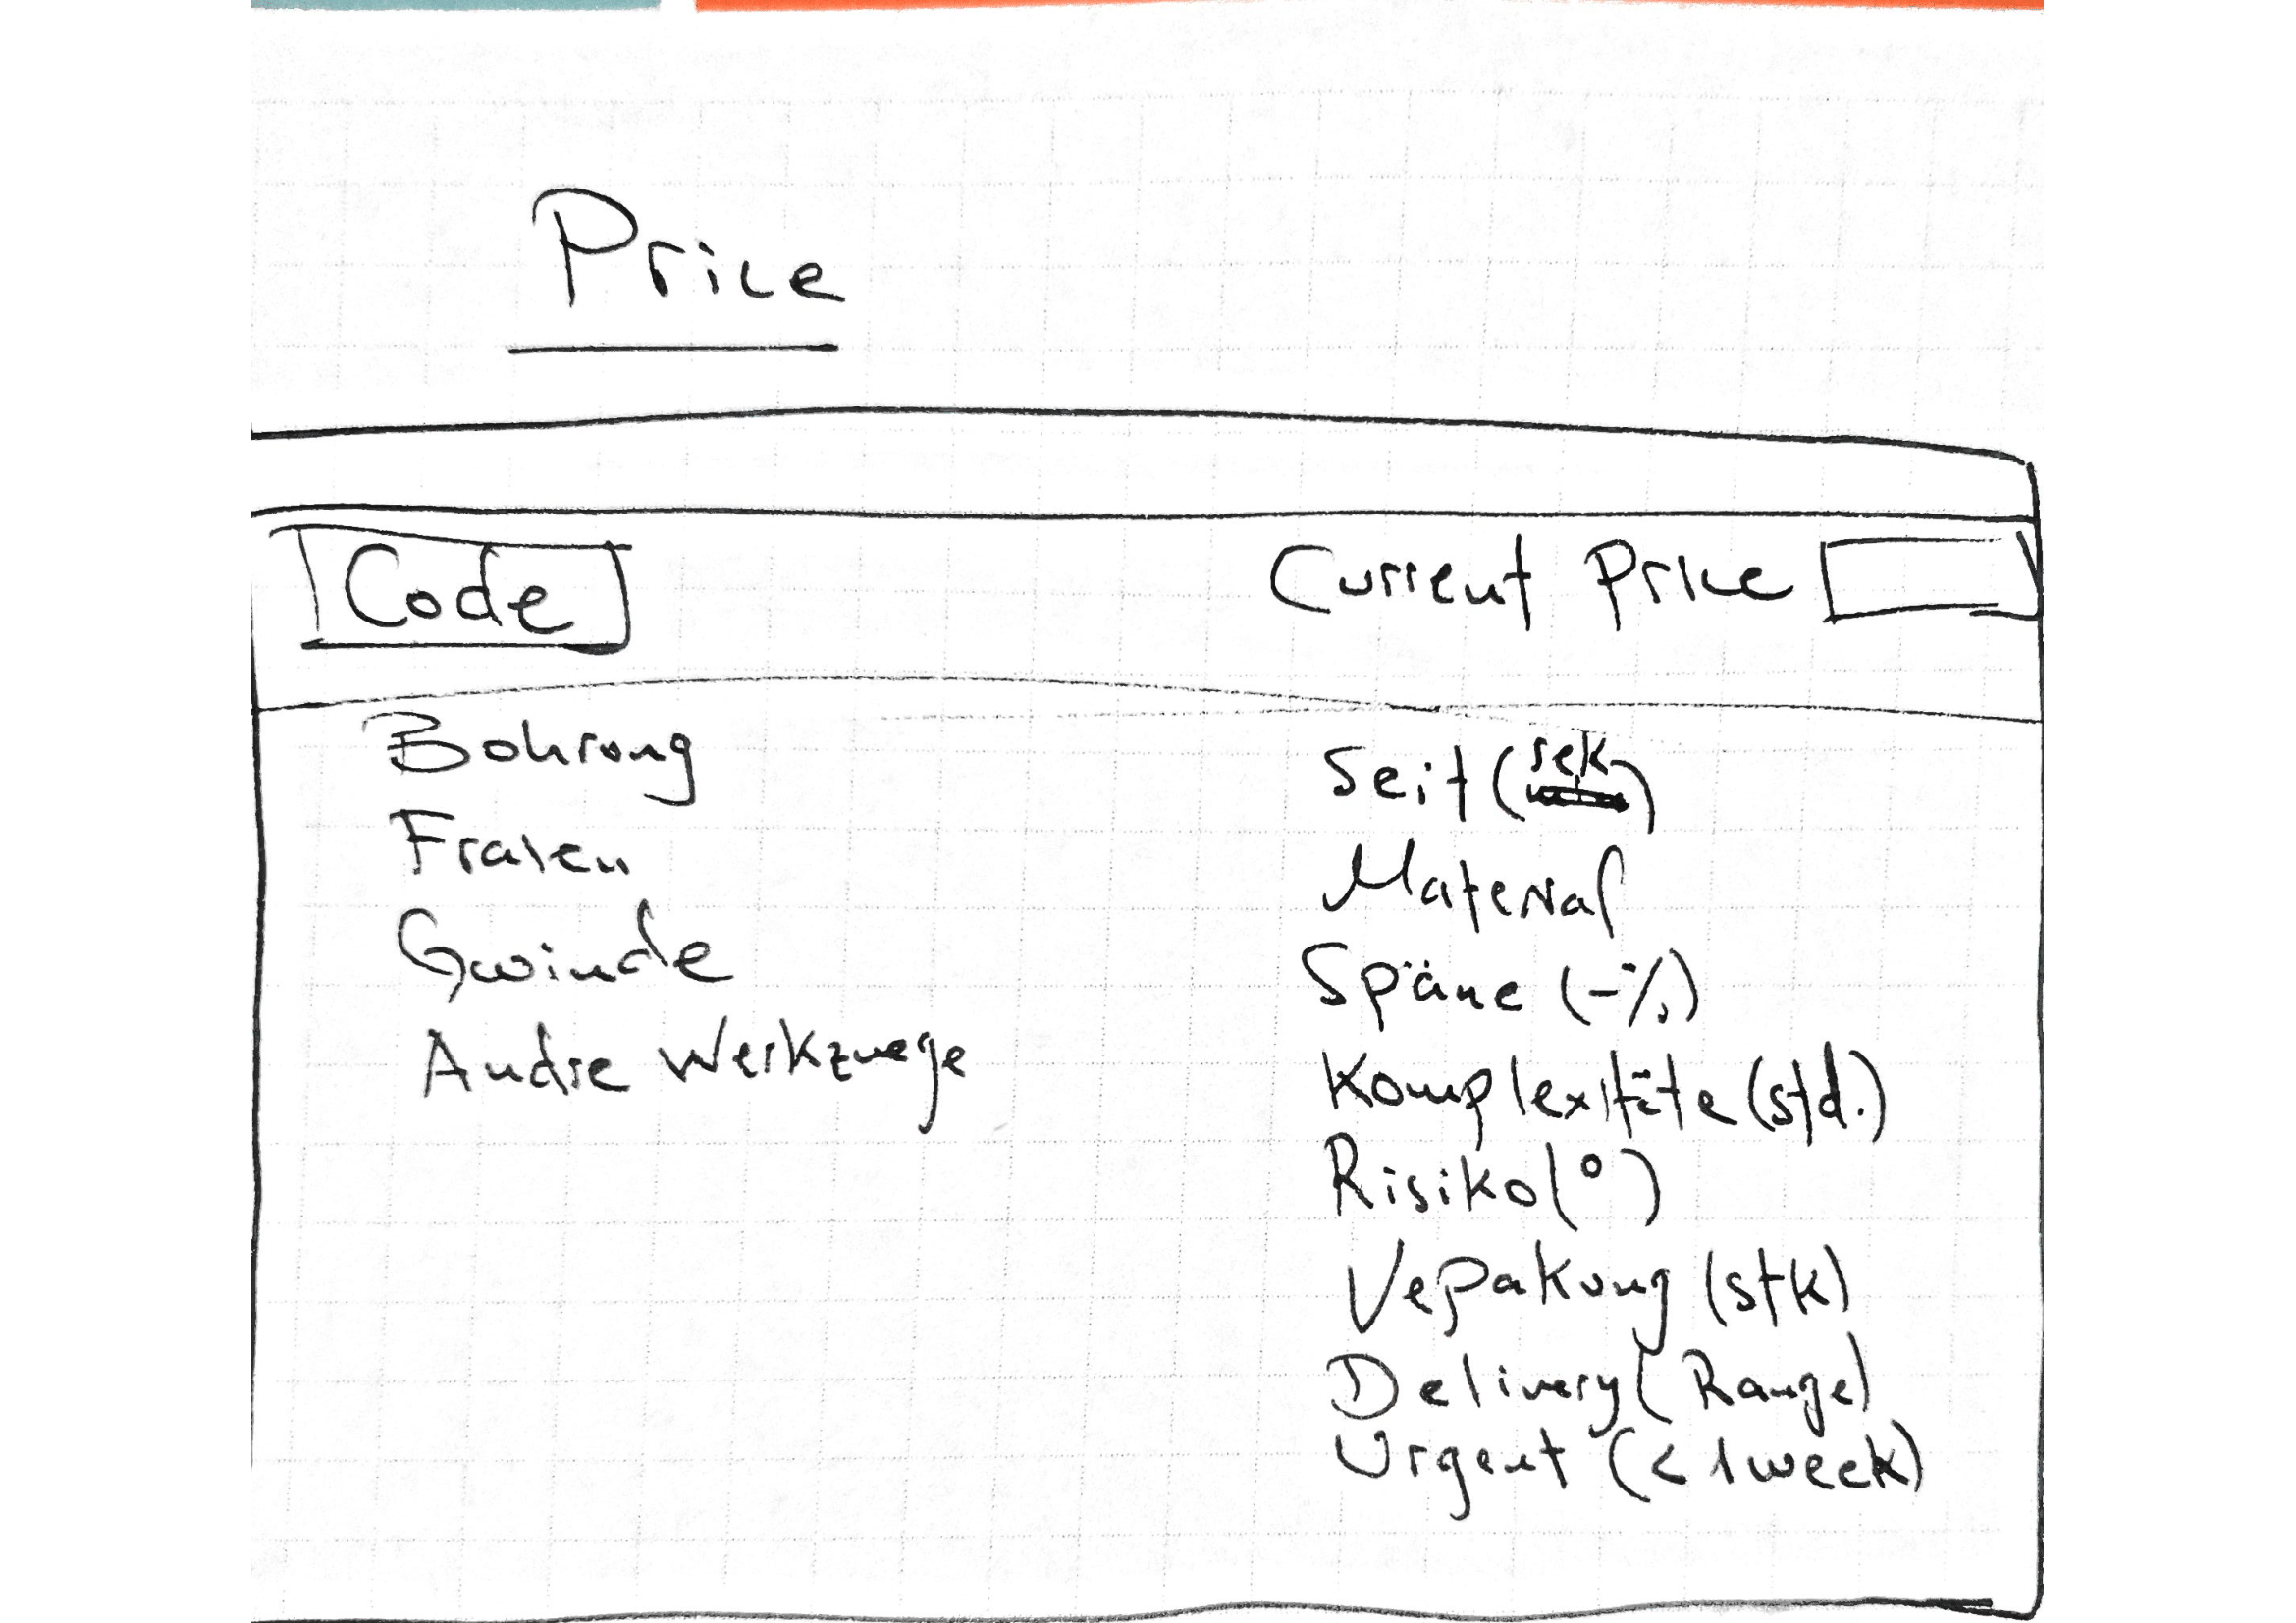 Price
Code
Current Price
Bohrung
Frasen
Gwinde
Andre Werkzuege
Seit (sek)
Material
Späne (-%)
Komplexitäte (std.)
Risiko (°)
Vepakung (stk)
Delivery (Range)
Urgent (< 1 week)